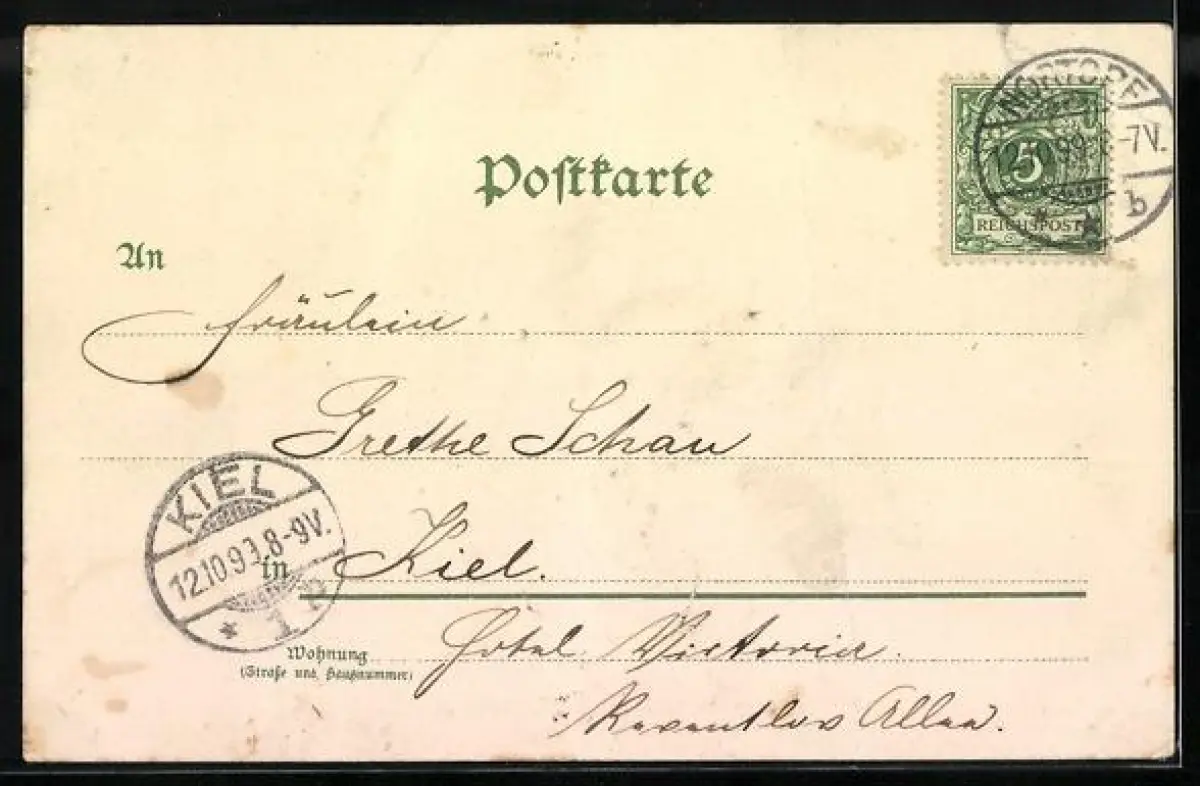 Postkarte
NORTORF
99 6-7V.
b
5
REICHSPOST
An
Fräulein
Grethe Schau
KIEL
12.10.99.8-9V.
1
in Kiel.
Wohnung
(Straße und Hausnummer)
Hotel Victoria.
Reventlov Allee.